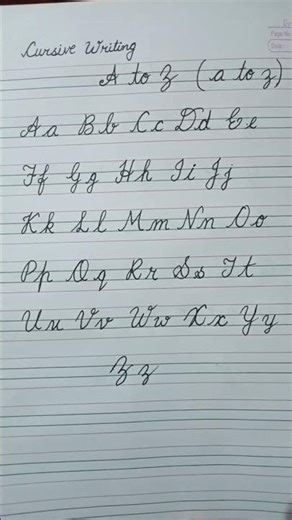 Cursive Writing
A to Z (a to z)
Aa Bb Cc Dd Ee
Ff Gg Hh Ii Jj
Kk Ll Mm Nn Oo
Pp Qq Rr Ss Tt
Uu Vv Ww Xx Yy
Zz